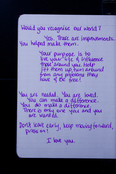 Would you recognise our world?
Yes. There are improvements.
You helped make them.
Your purpose is to
live your life & influence
those around you. Help
them turn around
from any problems they
have & be free!
You are needed. You are loved.
You can make a difference.
You do make a difference.
There is only one you and you
are valuable.
Don't leave early, keep moving forward,
press on!
I love you.